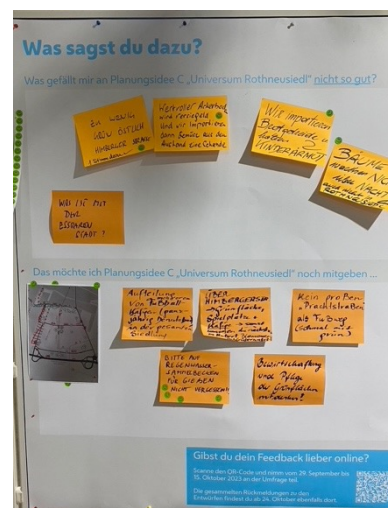 Was sagst du dazu?
Was gefällt mir an Planungsidee C „Universum Rothneusiedl" nicht so gut?
ZU WENIG
GRÜN ÖSTLICH
HIMBERGER
Wertvoller Ackerboden
wird versiegelt
und wir importieren
dann Gemüse aus dem
Ausland eine Schande
Wir importieren
HINTERHER
BÄUME
WAS IST MIT
DER
ESSBAREN
STADT?
Das möchte ich Planungsidee C „Universum Rothneusiedl" noch mitgeben ...
Aufteilung
von Fußball-
in der gesamten
Siedlung
ÜBER
HIMBERGERSTR
Grünfläche,
Kein großen
Prachtstraßen
als Fußweg
(schmal und
grün)
BITTE AUF
REGENWASSER-
SAMMELBECKEN
FÜR GIEßEN
NICHT VERGESSEN!
Bewirtschaftung
und Pflege
der Grünflächen
mitdenken!
Gibst du dein Feedback lieber online?
Scanne den QR-Code und nimm vom 29. September bis
15. Oktober 2023 an der Umfrage teil.
Die gesammelten Rückmeldungen zu den
Entwürfen findest du ab 24. Oktober ebenfalls dort.